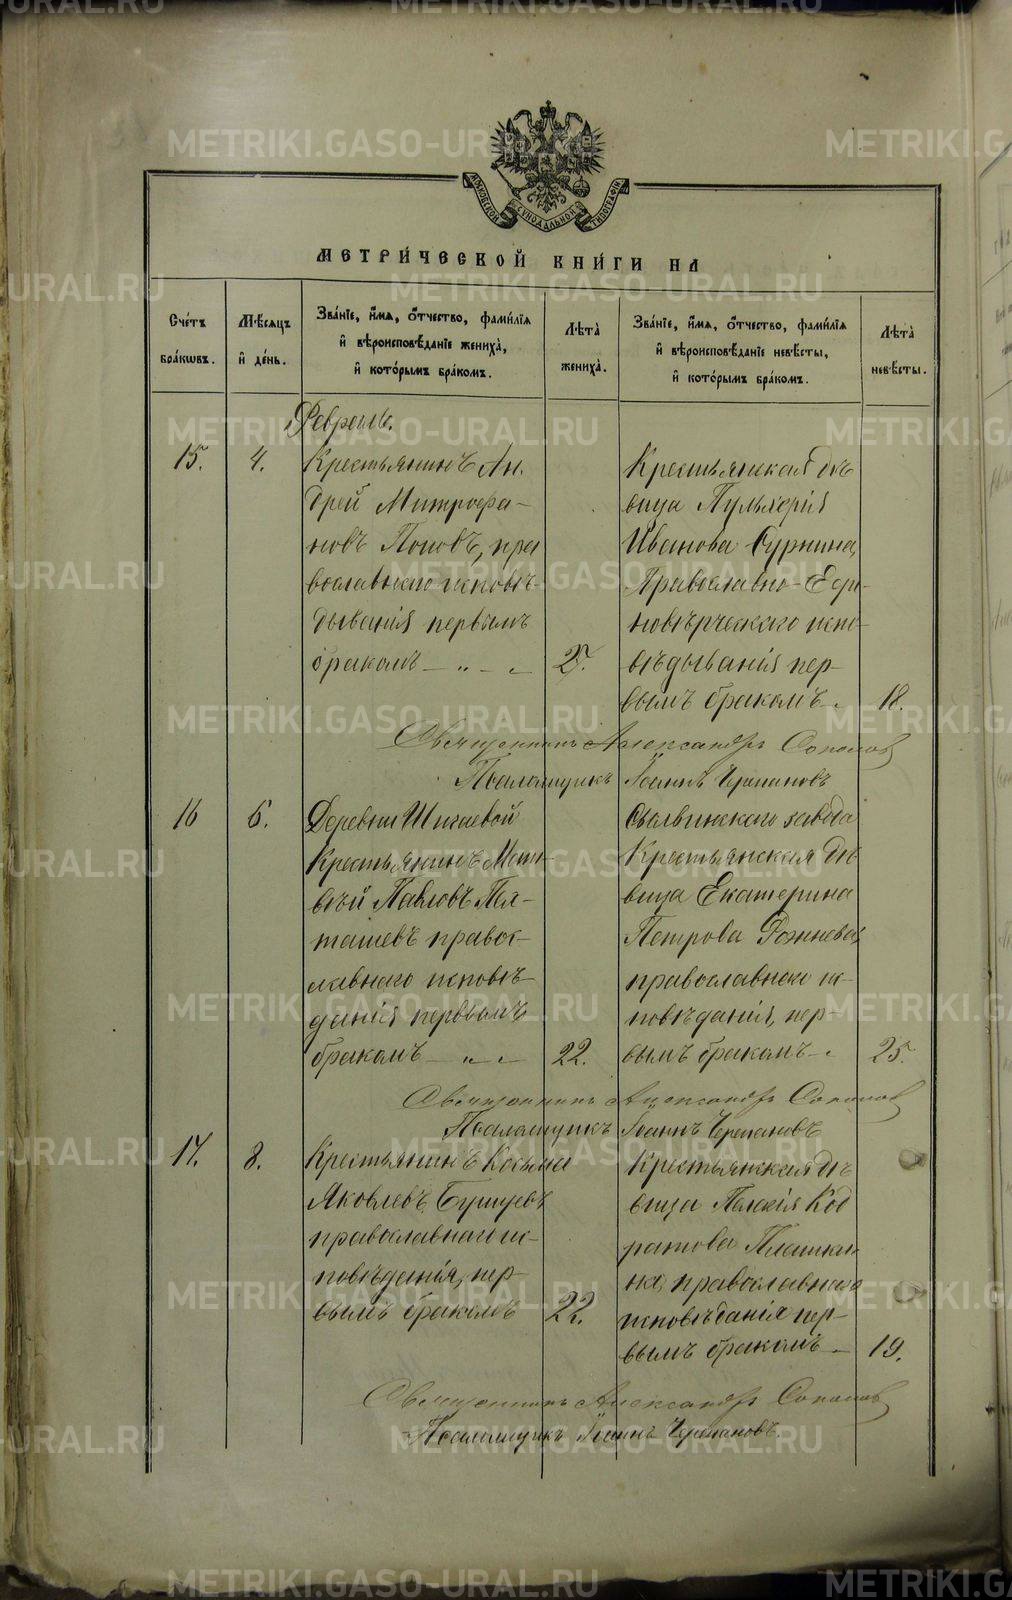 МОСКОВСКОЙ СѴНОДАЛЬНОЙ ТИПОГРАФІИ
МЕТРИ́ЧЕСКОЙ КНИ́ГИ НА
Сче́тъ бра́кѡвъ.
Мѣ́сяцъ и҆ де́нь.
Зва́нїе, и҆́мя, ѻ҆́тчество, фами́лїя и҆ вѣроисповѣ́данїе жениха̀, и҆ кото́рымъ бра́комъ.
Лѣ́та жениха̀.
Зва́нїе, и҆́мя, ѻ҆́тчество, фами́лїя и҆ вѣроисповѣ́данїе невѣ́сты, и҆ кото́рымъ бра́комъ.
Лѣ́та невѣ́сты.
Февраль.
15. 4. Крестьянинъ Ан-
дрей Митрофа-
новъ Поповъ, пра
вославнаго исповѣ-
дыванія первымъ
бракомъ — „ — „ 27.
Крестьянская дѣ
вица Пульхерія
Иванова Сурнина,
Православно-Еди-
новѣрческаго испо-
вѣдыванія пер-
вымъ бракомъ. 18.
Священникъ Александръ Соколов
Псаломщикъ Іоаннъ Черепановъ
16 6. Деревни Шигаевой
Крестьянинъ Мат-
вѣй Павловъ Пал-
ташевъ правос-
лавнаго исповѣ-
данія первымъ
бракомъ — „ — „ 22.
Сылвинскаго завода
Крестьянская дѣ
вица Екатерина
Петрова
православнаго ис-
повѣданія, пер-
вымъ бракомъ — „ 25.
Священникъ Александръ Соколов
Псаломщикъ Іоаннъ Черепановъ
17. 8. Крестьянинъ Косьма
Яковлевъ
православнаго ис-
повѣданія, пер-
вымъ бракомъ 22.
Крестьянская дѣ
вица Код
ратова
на, православнаго
исповѣданія пер-
вымъ бракомъ — 19.
Священникъ Александръ Соколов
Псаломщикъ Іоаннъ Черепановъ.
METRIKI.GASO-URAL.RU